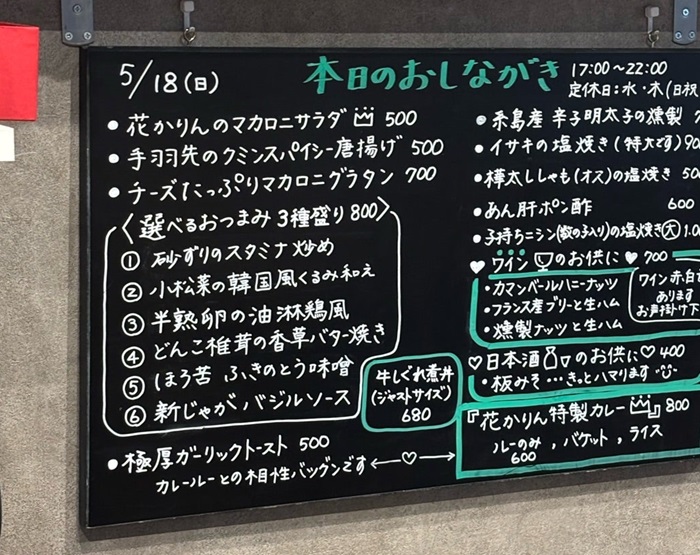 5/18(日)
本日のおしながき
17:00~22:00
定休日:水・木(日祝
• 花かりんのマカロニサラダ 500
• 手羽先のクミンスパイシー唐揚げ 500
• チーズたっぷりマカロニグラタン 700
〈選べるおつまみ 3種盛り 800〉
① 砂ずりのスタミナ炒め
② 小松菜の韓国風くるみ和え
③ 半熟卵の油淋鶏風
④ どんこ椎茸の香草バター焼き
⑤ ほろ苦 ふきのとう味噌
⑥ 新じゃが バジルソース
牛しぐれ煮丼
(ジャストサイズ)
680
• 極厚ガーリックトースト 500
カレールーとの相性バツグンです ←♡→
• 糸島産 辛子明太子の燻製
• イサキの塩焼き(特大です)90
• 樺太ししゃも(オス)の塩焼き 50
• あん肝ポン酢 600
• 子持ちニシン(数の子入り)の塩焼き(大) 1.0
♥ ワインのお供に ♥ 700
• カマンベールハニーナッツ
• フランス産ブリーと生ハム
• 燻製ナッツと生ハム
ワイン赤白
あります
お声掛け下
♡日本酒のお供に♡ 400
• 板みそ …きっとハマります
『花かりん特製カレー』 800
ルーのみ , バケット , ライス
600